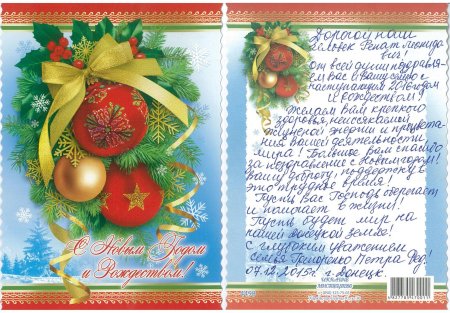 С Новым Годом
и Рождеством!
Дорогой наш
человек Ренат
От всей души поздравля-
ем Вас и Вашу с
наступающим 2016 годом
и Рождеством!
Желаем Вам крепкого
здоровья, неиссякаемой
энергии и процвета-
ния Вашей деятельности,
мира! Большое Вам спасибо
за поздравление с Новым годом!
Вашу доброту, поддержку в
это трудное время!
Пусть Вас Господь оберегает
и помогает в жизни!
Пусть будет мир на
нашей донецкой земле!
С глубоким уважением
семья Петра Фед.!
07.12.2015г. г. Донецк.